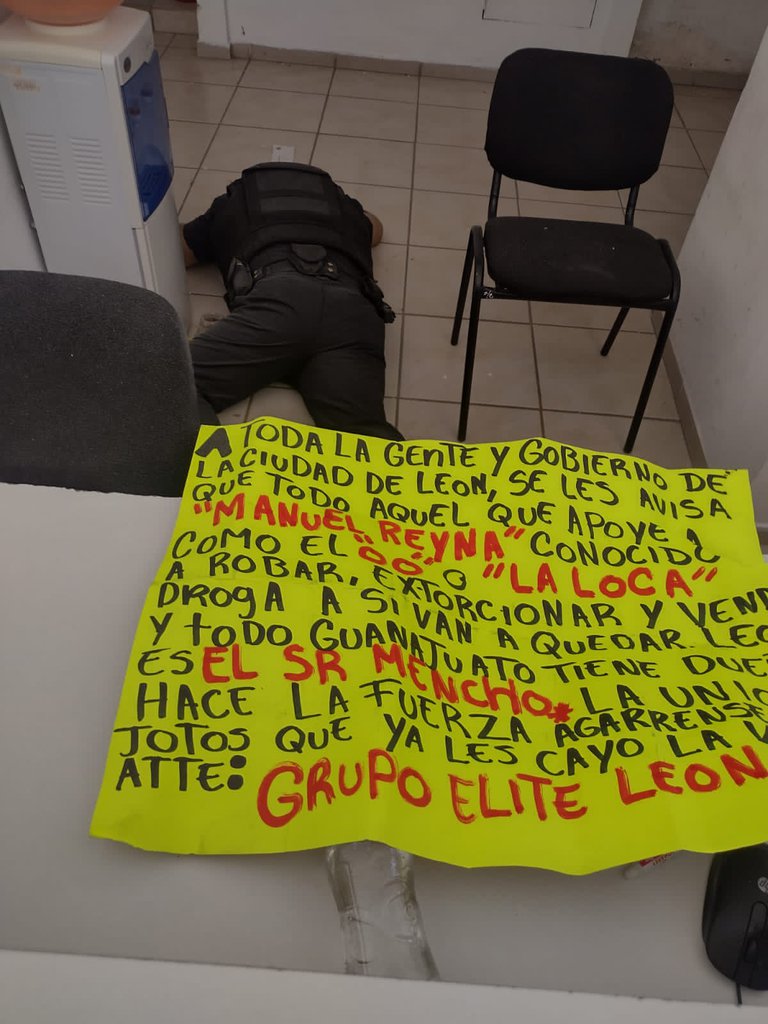 A TODA LA GENTE Y GOBIERNO DE
LA CIUDAD DE LEON, SE LES AVISA
QUE TODO AQUEL QUE APOYE A
"MANUEL REYNA" CONOCIDO
COMO EL "OO" O "LA LOCA"
A ROBAR, EXTORCIONAR Y VEND
DROGA A SI VAN A QUEDAR. LEO
Y TODO GUANAJUATO TIENE DUE
ES EL SR MENCHO. LA UNIO
HACE LA FUERZA AGARRENSE
JOTOS QUE YA LES CAYO LA V
ATTE: GRUPO ELITE LEON